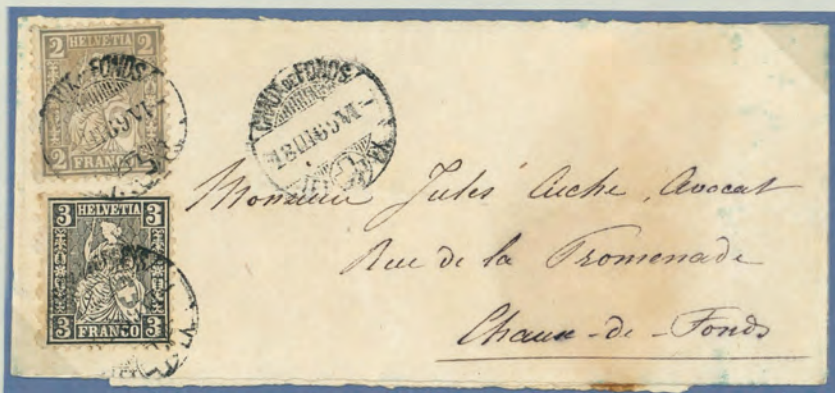 2 HELVETIA 2
2 FRANCO 2
3 HELVETIA 3
3 FRANCO 3
CHAUX DE FONDS
Monsieur Jules Cuche, Avocat
Rue de la Promenade
Chaux-de-Fonds